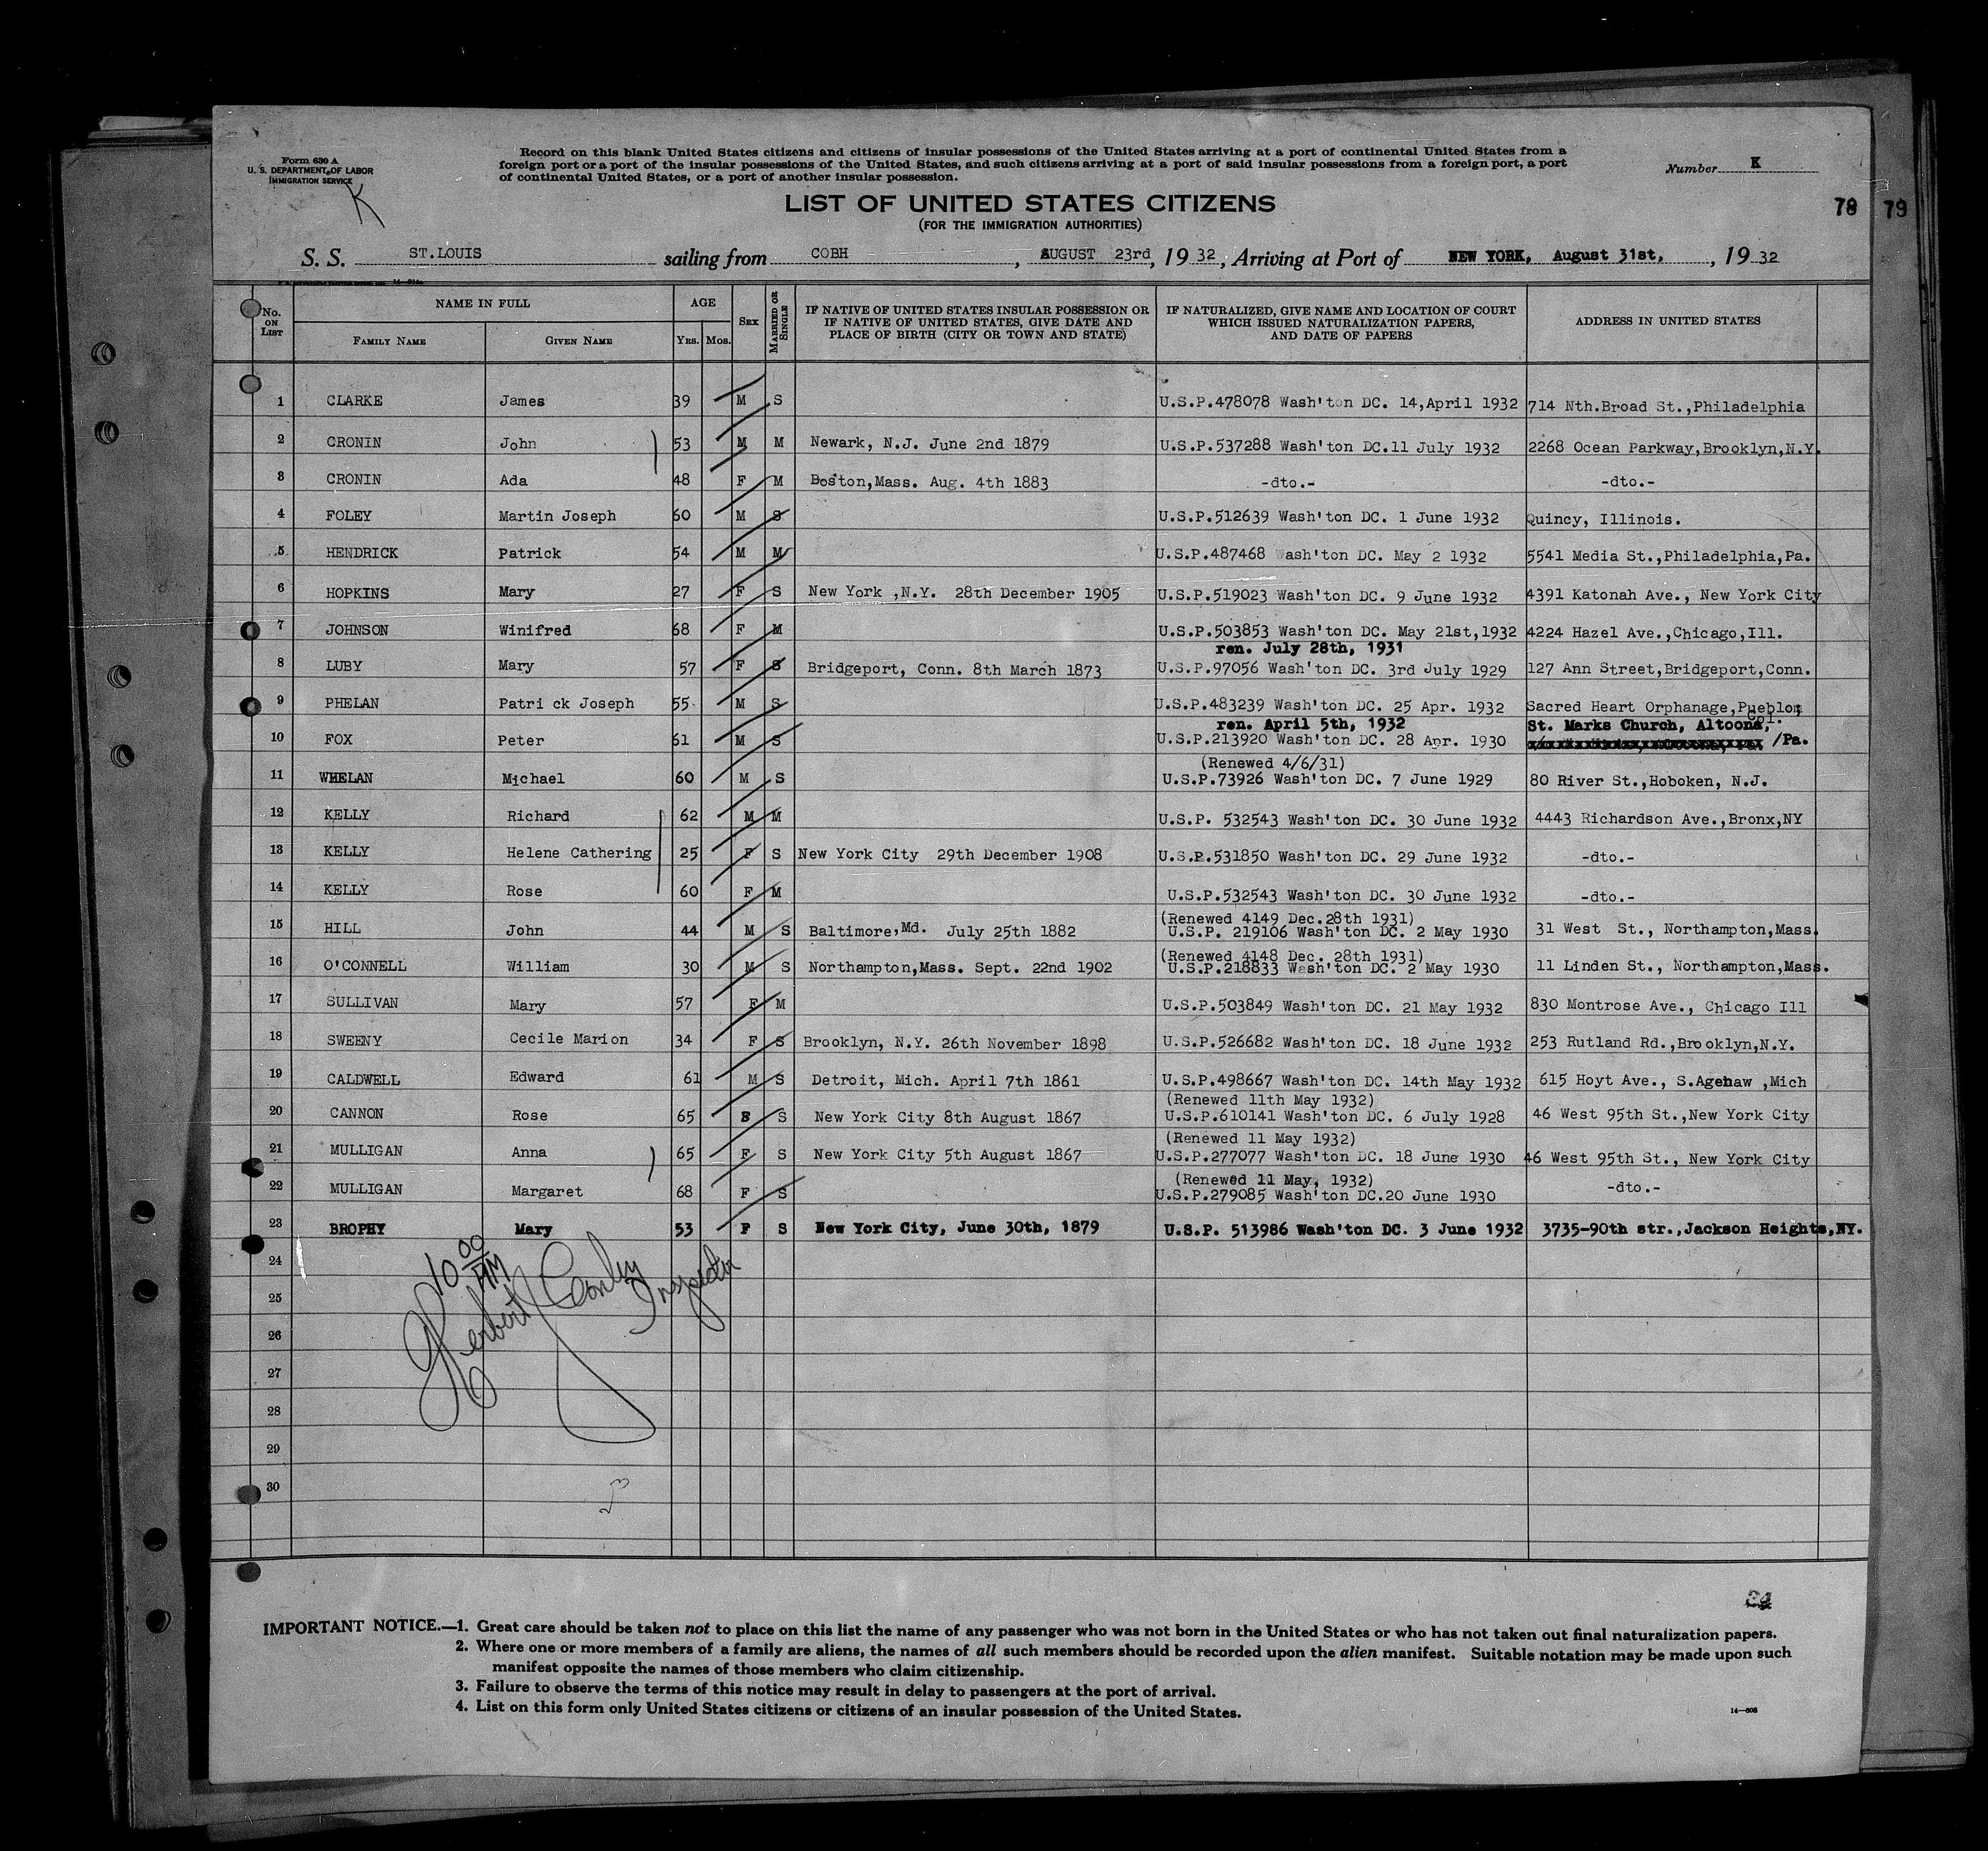 Form 630 A
U. S. DEPARTMENT OF LABOR
IMMIGRATION SERVICE
K
Record on this blank United States citizens and citizens of insular possessions of the United States arriving at a port of continental United States from a
foreign port or a port of the insular possessions of the United States, and such citizens arriving at a port of said insular possessions from a foreign port, a port
of continental United States, or a port of another insular possession.
Number K
LIST OF UNITED STATES CITIZENS
(FOR THE IMMIGRATION AUTHORITIES)
78 79
S. S. ST.LOUIS sailing from COBH, AUGUST 23rd, 1932, Arriving at Port of NEW YORK, August 31st, , 1932
No. ON LIST NAME IN FULL FAMILY NAME GIVEN NAME AGE YRS. MOS. SEX MARRIED OR SINGLE IF NATIVE OF UNITED STATES INSULAR POSSESSION OR IF NATIVE OF UNITED STATES, GIVE DATE AND PLACE OF BIRTH (CITY OR TOWN AND STATE) IF NATURALIZED, GIVE NAME AND LOCATION OF COURT WHICH ISSUED NATURALIZATION PAPERS, AND DATE OF PAPERS ADDRESS IN UNITED STATES
1 CLARKE James 39 M S U.S.P.478078 Wash'ton DC. 14,April 1932 714 Nth.Broad St.,Philadelphia
2 CRONIN John 53 M M Newark, N.J. June 2nd 1879 U.S.P.537288 Wash'ton DC.11 July 1932 2268 Ocean Parkway,Brooklyn,N.Y.
3 CRONIN Ada 48 F M Boston,Mass. Aug. 4th 1883 -dto.- -dto.-
4 FOLEY Martin Joseph 60 M S U.S.P.512639 Wash'ton DC. 1 June 1932 Quincy, Illinois.
5 HENDRICK Patrick 54 M M U.S.P.487468 Wash'ton DC. May 2 1932 5541 Media St.,Philadelphia,Pa.
6 HOPKINS Mary 27 F S New York ,N.Y. 28th December 1905 U.S.P.519023 Wash'ton DC. 9 June 1932 4391 Katonah Ave., New York City
7 JOHNSON Winifred 68 F M U.S.P.503853 Wash'ton DC. May 21st,1932 4224 Hazel Ave.,Chicago,Ill.
ren. July 28th, 1931
8 LUBY Mary 57 F S Bridgeport, Conn. 8th March 1873 U.S.P.97056 Wash'ton DC. 3rd July 1929 127 Ann Street,Bridgeport,Conn.
9 PHELAN Patri ck Joseph 55 M S U.S.P.483239 Wash'ton DC. 25 Apr. 1932 Sacred Heart Orphanage,Pueblo, Col.
ren. April 5th, 1932 St. Marks Church, Altoona,
10 FOX Peter 61 M S U.S.P.213920 Wash'ton DC. 28 Apr. 1930 /Pa.
(Renewed 4/6/31)
11 WHELAN Michael 60 M S U.S.P.73926 Wash'ton DC. 7 June 1929 80 River St.,Hoboken, N.J.
12 KELLY Richard 62 M M U.S.P. 532543 Wash'ton DC. 30 June 1932 4443 Richardson Ave.,Bronx,NY
13 KELLY Helene Cathering 25 F S New York City 29th December 1908 U.S.P.531850 Wash'ton DC. 29 June 1932 -dto.-
14 KELLY Rose 60 F M U.S.P.532543 Wash'ton DC. 30 June 1932 -dto.-
(Renewed 4149 Dec.28th 1931)
15 HILL John 44 M S Baltimore,Md. July 25th 1882 U.S.P. 219106 Wash'ton DC. 2 May 1930 31 West St., Northampton,Mass.
(Renewed 4148 Dec. 28th 1931)
16 O'CONNELL William 30 M S Northampton,Mass. Sept. 22nd 1902 U.S.P.218833 Wash'ton DC. 2 May 1930 11 Linden St., Northampton,Mass.
17 SULLIVAN Mary 57 F M U.S.P.503849 Wash'ton DC. 21 May 1932 830 Montrose Ave., Chicago Ill
18 SWEENY Cecile Marion 34 F S Brooklyn, N.Y. 26th November 1898 U.S.P.526682 Wash'ton DC. 18 June 1932 253 Rutland Rd.,Brooklyn,N.Y.
19 CALDWELL Edward 61 M S Detroit, Mich. April 7th 1861 U.S.P.498667 Wash'ton DC. 14th May 1932 615 Hoyt Ave., S.Agenaw ,Mich
(Renewed 11th May 1932)
20 CANNON Rose 65 F S New York City 8th August 1867 U.S.P.610141 Wash'ton DC. 6 July 1928 46 West 95th St.,New York City
(Renewed 11 May 1932)
21 MULLIGAN Anna 65 F S New York City 5th August 1867 U.S.P.277077 Wash'ton DC. 18 June 1930 46 West 95th St., New York City
(Renewed 11 May, 1932)
22 MULLIGAN Margaret 68 F S U.S.P.279085 Wash'ton DC.20 June 1930 -dto.-
23 BROPHY Mary 53 F S New York City, June 30th, 1879 U.S.P. 513986 Wash'ton DC. 3 June 1932 3735-90th str.,Jackson Heights,NY.
24
10 00 AM
Herbert Conley Inspector
25
26
27
28
29
30
23
IMPORTANT NOTICE.—1. Great care should be taken not to place on this list the name of any passenger who was not born in the United States or who has not taken out final naturalization papers.
2. Where one or more members of a family are aliens, the names of all such members should be recorded upon the alien manifest. Suitable notation may be made upon such
manifest opposite the names of those members who claim citizenship.
3. Failure to observe the terms of this notice may result in delay to passengers at the port of arrival.
4. List on this form only United States citizens or citizens of an insular possession of the United States.
14—808